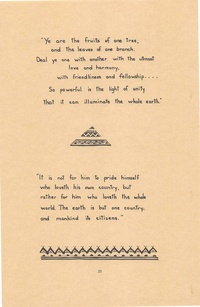 "Ye are the fruits of one tree,
and the leaves of one branch.
Deal ye one with another with the utmost
love and harmony,
with friendliness and fellowship....
So powerful is the light of unity
that it can illuminate the whole earth."
"It is not for him to pride himself
who loveth his own country, but
rather for him who loveth the whole
world. The earth is but one country,
and mankind its citizens."